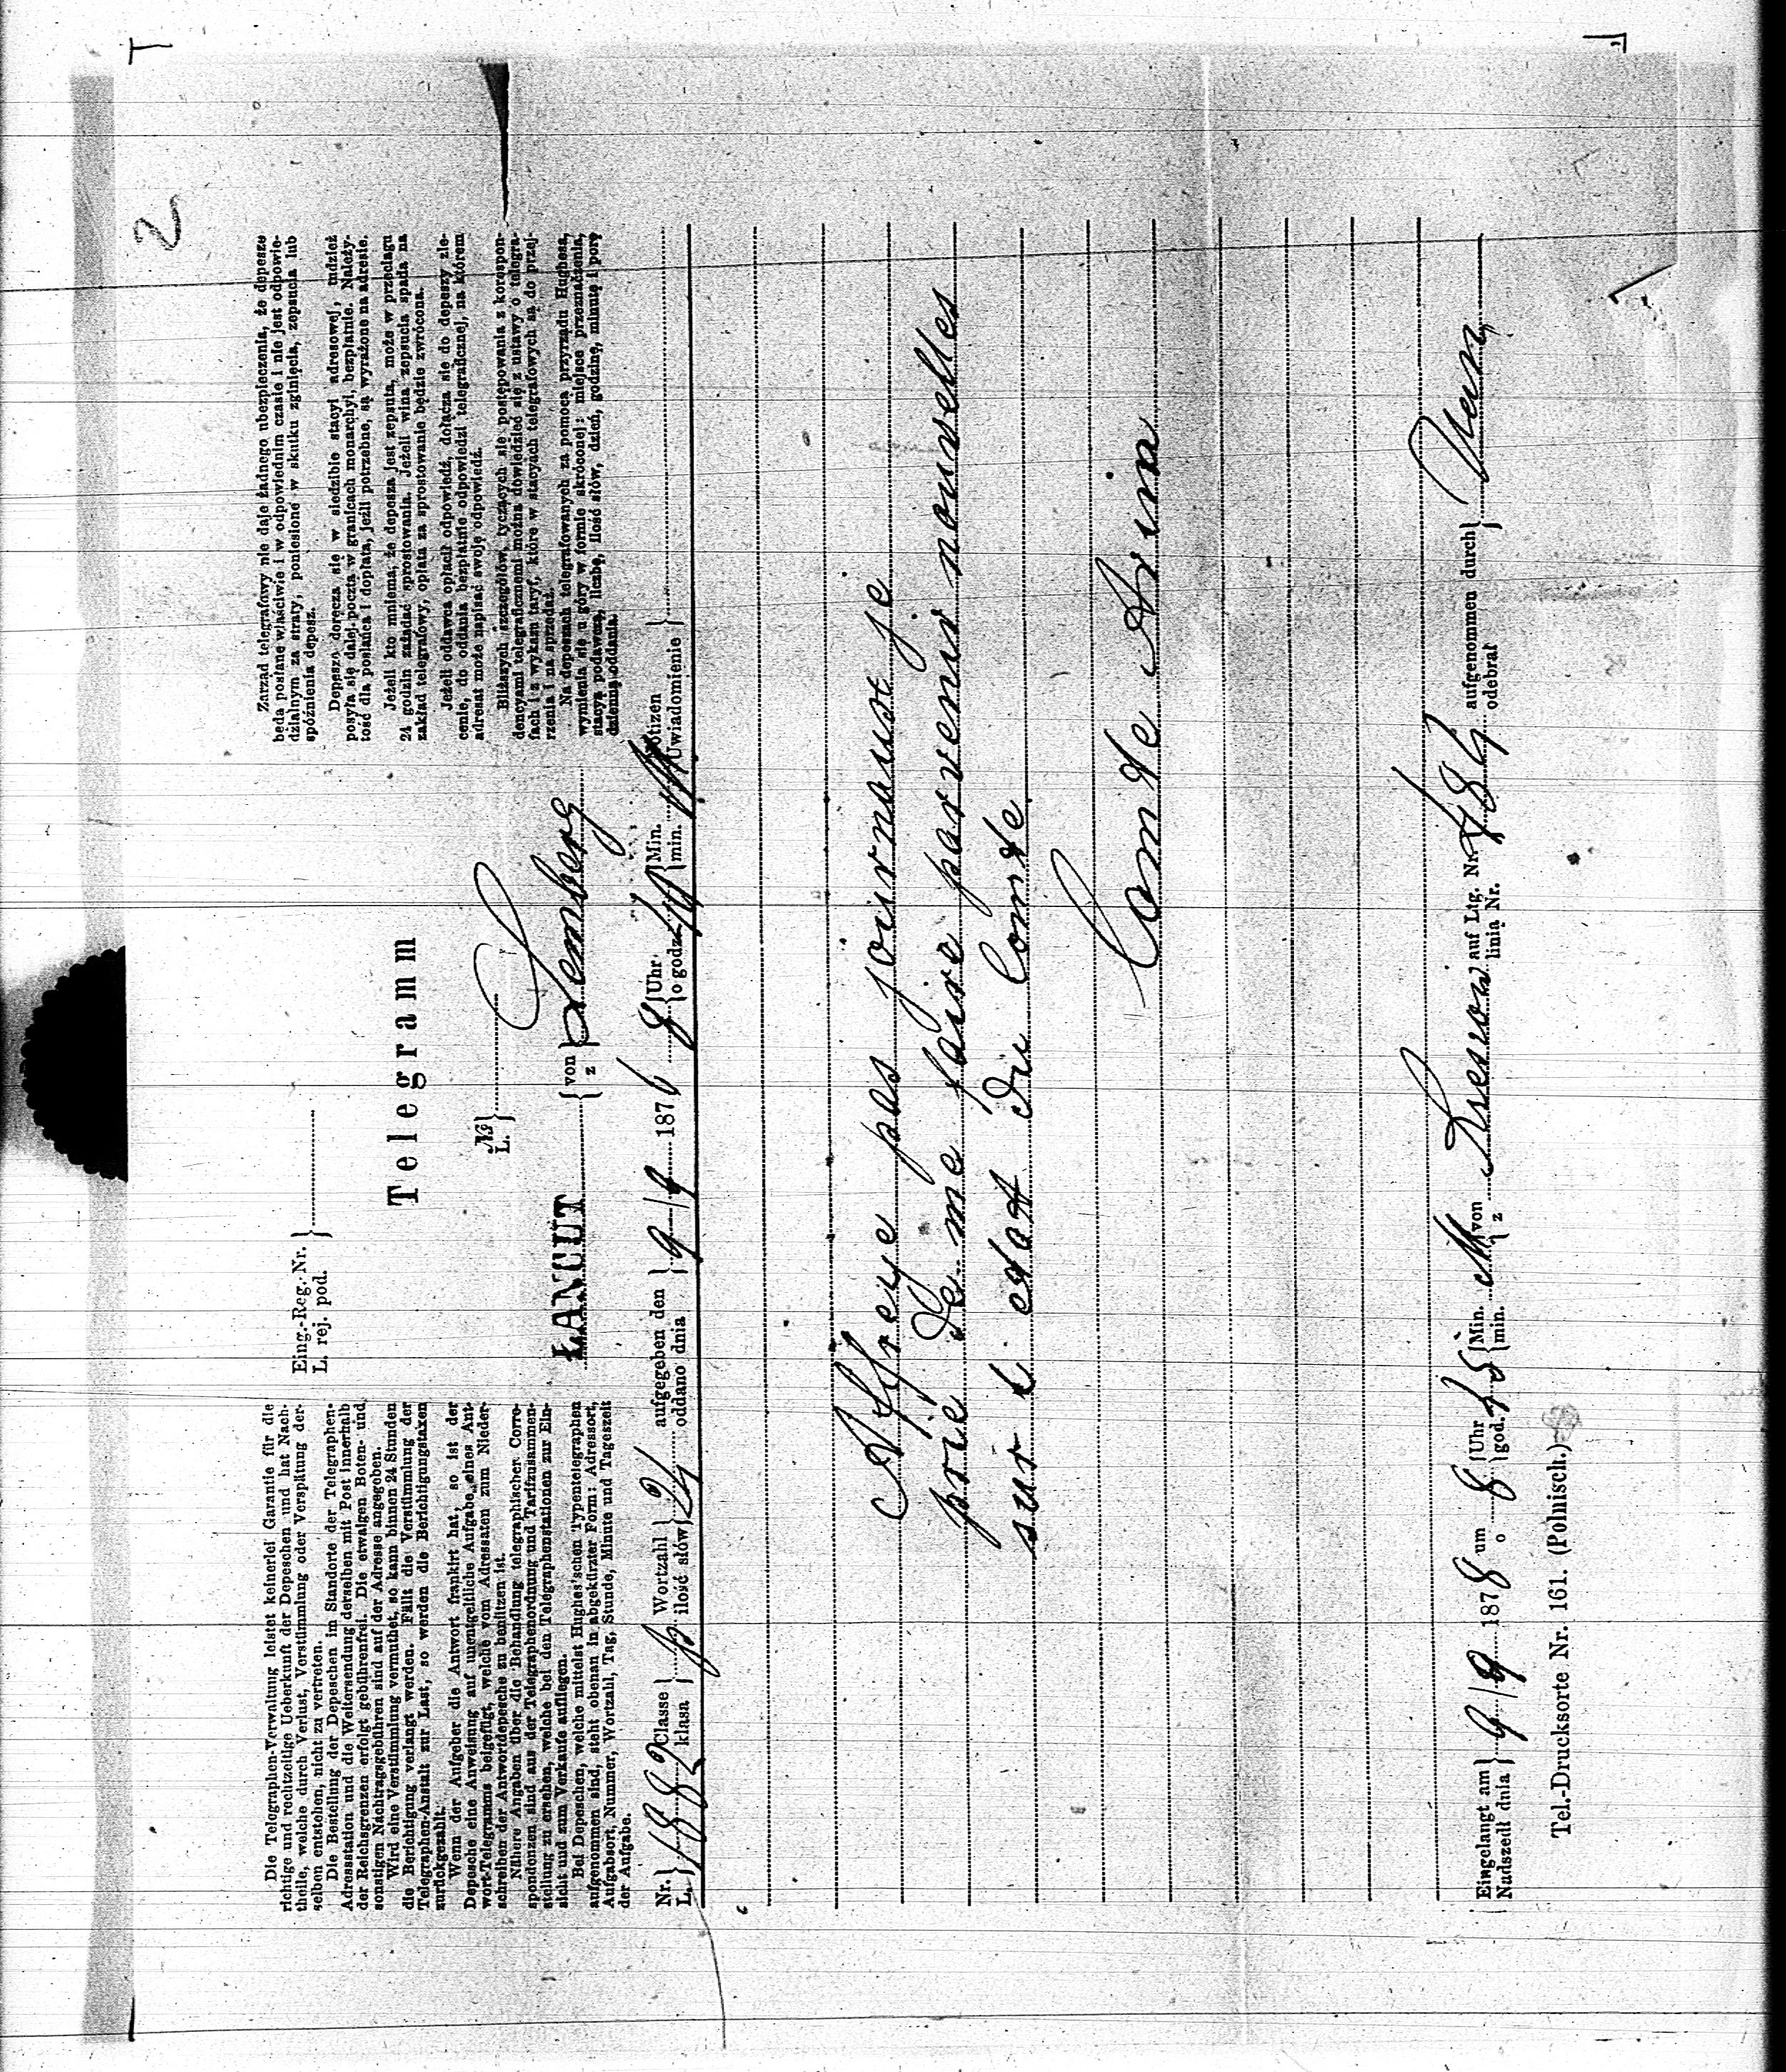 2
Die Telegraphen-Verwaltung leistet keinerlei Garantie für die
richtige und rechtzeitige Ueberkunft der Depeschen und hat Nach-
theile, welche durch Verlust, Verstümmlung oder Verspätung der-
selben entstehen, nicht zu vertreten.
Die Bestellung der Depeschen im Standorte der Telegraphen-
Adressstation und die Weitersendung derselben mit Post innerhalb
der Reichsgrenzen erfolgt gebührenfrei. Die etwaigen Boten- und
sonstigen Nachtragsgebühren sind auf der Adresse angegeben.
Wird eine Verstümmlung vermuthet, so kann binnen 24 Stunden
die Berichtigung verlangt werden. Fällt die Verstümmlung der
Telegraphen-Anstalt zur Last, so werden die Berichtigungstaxen
zurückgezahlt.
Wenn der Aufgeber die Antwort frankirt hat, so ist der
Depesche eine Anweisung auf unentgeltliche Aufgabe eines Ant-
wort-Telegramms beigefügt, welche vom Adressaten zum Nieder-
schreiben der Antwortdepesche zu benützen ist.
Nähere Angaben über die Behandlung telegraphischer Corre-
spondenzen sind aus der Telegraphenordnung und Tarifzusammen-
stellung zu ersehen, welche bei den Telegraphenstationen zur Ein-
sicht und zum Verkaufe aufliegen.
Bei Depeschen, welche mittelst Hughes'schen Typentelegraphen
aufgenommen sind, steht obenan in abgekürzter Form: Adressort,
Aufgabsort, Nummer, Wortzahl, Tag, Stunde, Minute und Tageszeit
der Aufgabe.
Eing.-Reg.-Nr.
L. rej. pod.
Telegramm
№
L.
ŁAŃCUT von z Lemberg
Zarząd telegrafowy nie daje żadnego ubezpieczenia, że depesze
będą posłane właściwie i w odpowiednim czasie i nie jest odpowie-
dzialnym za straty, poniesione w skutku zginięcia, zepsucia lub
spóźnienia depesz.
Depesze doręcza się w siedzibie stacyi adresowej, tudzież
posyła się dalej pocztą w granicach monarchyi, bezpłatnie. Należy-
tość dla posłańca i dopłata, jeźli potrzebne, są wyrażone na adresie.
Jeżeli kto mniema, że depesza jest zepsuta, może w przeciągu
24 godzin zażądać sprostowania. Jeżeli wina zepsucia spada na
zakład telegrafowy, opłata za sprostowanie będzie zwrócona.
Jeżeli oddawca opłacił odpowiedź, dołącza się do depeszy zle-
cenie, do oddania bezpłatnie odpowiedzi telegraficznej, na którem
adresat może napisać swoję odpowiedź.
Bliższych szczegółów, tyczących się postępowania z korespon-
dencyami telegraficznemi można dowiedzieć się z ustawy o telegra-
fach i z wykazu taryf, które w stacyach telegrafowych są do przej-
rzenia i na sprzedaż.
Na depeszach telegrafowanych za pomocą przyrządu Hughesa,
wymienia się u góry w formie skróconej: miejsce przeznaczenia,
stacyą podawczą, liczbę, ilość słów, dzień, godzinę, minutę i porę
dzienną oddania.
Nr. 1882 Classe Wortzahl 24 aufgegeben den 9/9 187 8 Uhr Min. Notizen
L. klasa ilość słów oddano dnia o godz. min. Uwiadomienie
Affreye pas journaust je
prie de me faire parvenir nouvelles
sur l etat du Comte
Comte Arina
Eingelangt am 9/9 1878 um 8 Uhr 15 Min. von Rzeszow auf Ltg. Nr. aufgenommen durch
Nadszedł dnia o god. min. z linia Nr. odebrał
Tel.-Drucksorte Nr. 161. (Polnisch.)